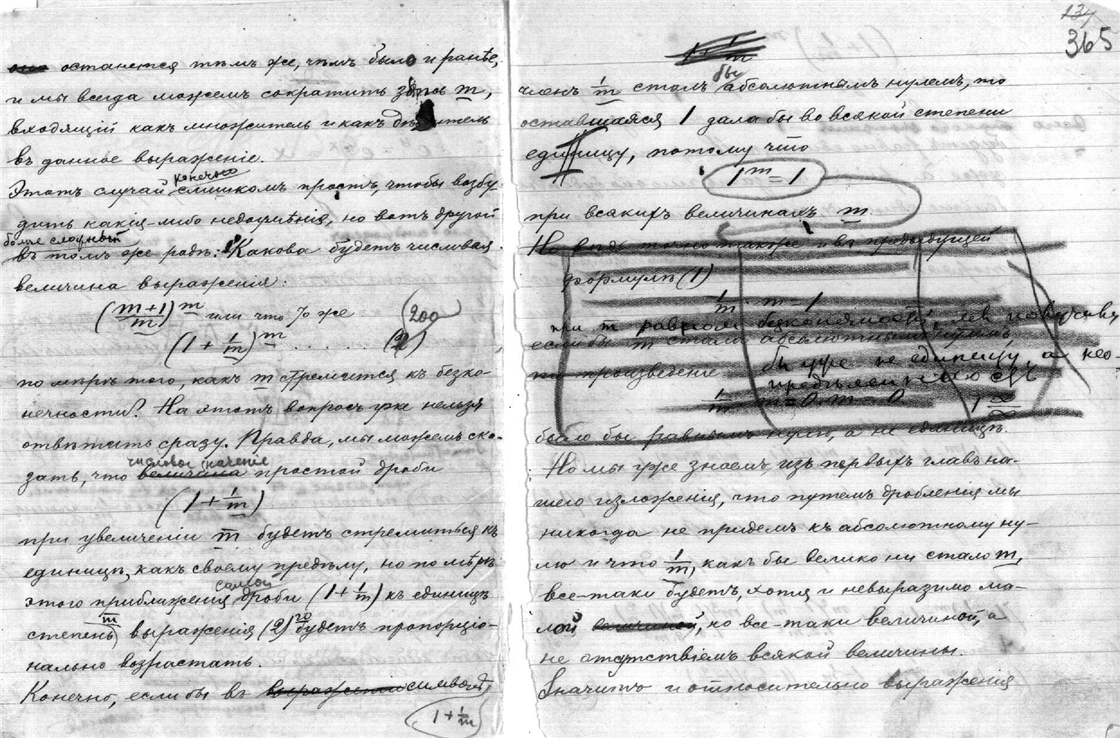 останется тѣмъ же, чѣмъ было и ранѣе,
и мы всегда можемъ сократить здѣсь m,
входящій какъ множитель и какъ дѣлитель
въ данное выраженіе.
Этотъ случай конечно слишкомъ простъ, чтобы возбу-
дить какія-либо недоумѣнія, но вотъ другой
болѣе сложный
въ томъ же родѣ: Какова будетъ числовая
величина выраженія:
((m+1)/m)^m или что то же
(200)
(1 + 1/m)^m . . . . (2)
по мѣрѣ того, какъ m стремится къ безко-
нечности? На этотъ вопросъ уже нельзя
отвѣтить сразу. Правда, мы можемъ ска-
зать, что числовое значеніе простой дроби
(1 + 1/m)
при увеличеніи m будетъ стремиться къ
единицѣ, какъ своему предѣлу, но по мѣрѣ
этого приближенія самой дроби (1 + 1/m) къ единицѣ
степень m выраженія (2)го будетъ пропорціо-
нально возрастать.
Конечно, если бы въ символѣ
1 + 1/m
134
365
членъ 1/m сталъ бы абсолютнымъ нулемъ, то
оставшаяся 1 дала бы во всякой степени
единицу, потому что
1^m = 1
при всякихъ величинахъ m
Но вѣдь точно также и въ предыдущей
формулѣ (1)
1/m · m = 1
если бы m стало абсолютнымъ
то произведеніе
бы уже не единицу, а нео-
предѣленность
1/m m = 0 m = 0
1^∞
было бы равнымъ нулю, а не единицѣ.
Но мы уже знаемъ изъ первыхъ главъ на-
шего изложенія, что путемъ дробленія мы
никогда не придемъ къ абсолютному ну-
лю и что 1/m, какъ бы велико ни стало m,
все-таки будетъ, хотя и невыразимо ма-
лой величиной, но все-таки величиной, а
не отсутствіемъ всякой величины.
Значитъ и относительно выраженія